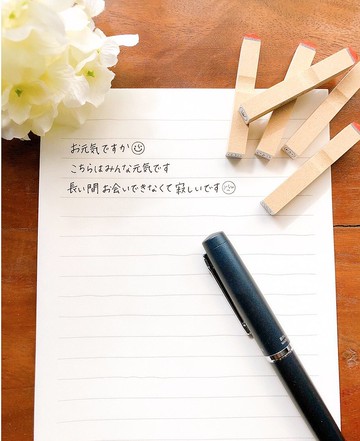 お元気ですか☺
こちらはみんな元気です
長い間お会いできなくて寂しいです☹